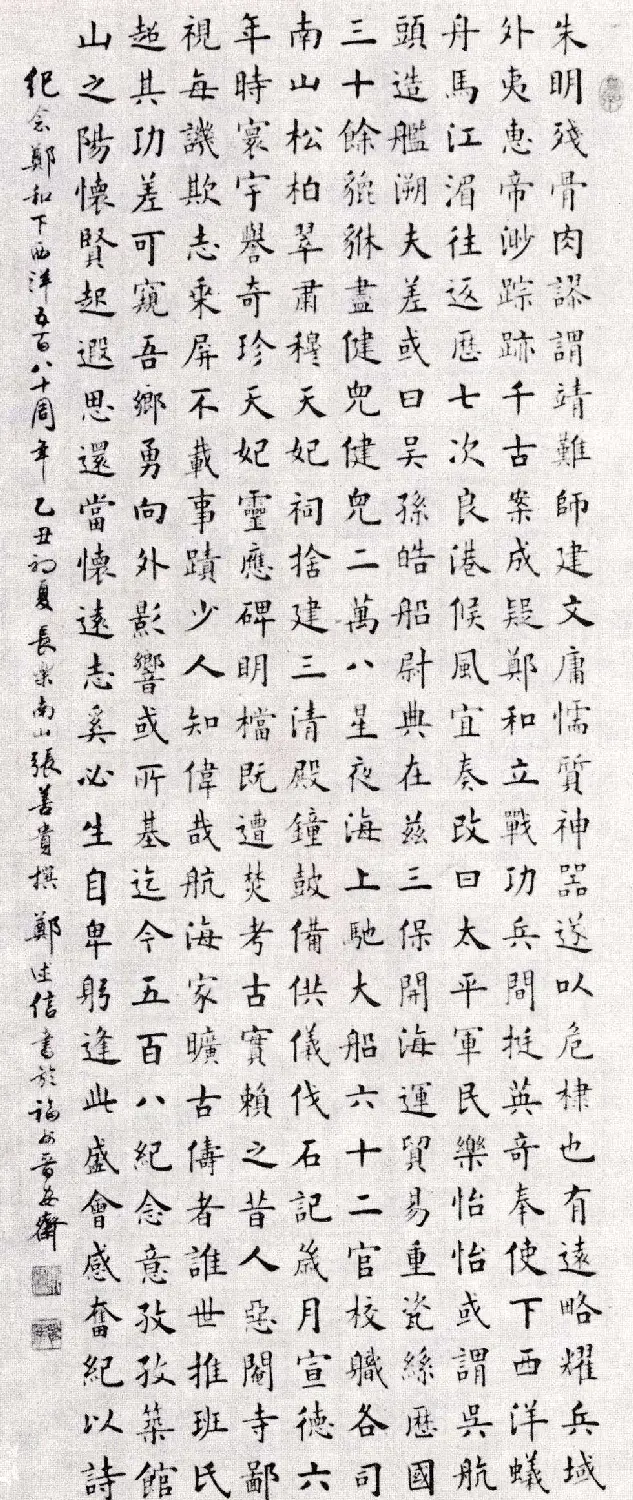 朱明殘骨肉謬謂靖難師建文庸懦質神器遂以危棣也有遠略耀兵域
外夷惠帝渺踪跡千古案成疑鄭和立戰功兵間挺英奇奉使下西洋蟻
舟馬江湄往返歷七次良港候風宜奏改曰太平軍民樂怡怡或謂吳航
頭造艦溯夫差或曰吴孫皓船尉典在茲三保開海運貿易重瓷絲歷國
三十餘貔貅盡健兒健兒二萬八星夜海上馳大船六十二官校職各司
南山松柏翠肅穆天妃祠捨建三清殿鐘鼓備供儀伐石記歲月宣德六
年時寰宇譽奇珍天妃靈應碑明檔既遭焚考古實賴之昔人惡閹寺鄙
視每譏欺志乘屏不載事蹟少人知偉哉航海家曠古儔者誰世推班氏
超其功差可窺吾鄉勇向外影響或所基迄今五百八紀念意孜孜築館
山之陽懷賢起遐思還當懷遠志奚必生自卑躬逢此盛會感奮紀以詩
紀念鄭和下西洋五百八十周年 乙丑初夏長樂南山張善貴撰 鄭 信書於福州晋安